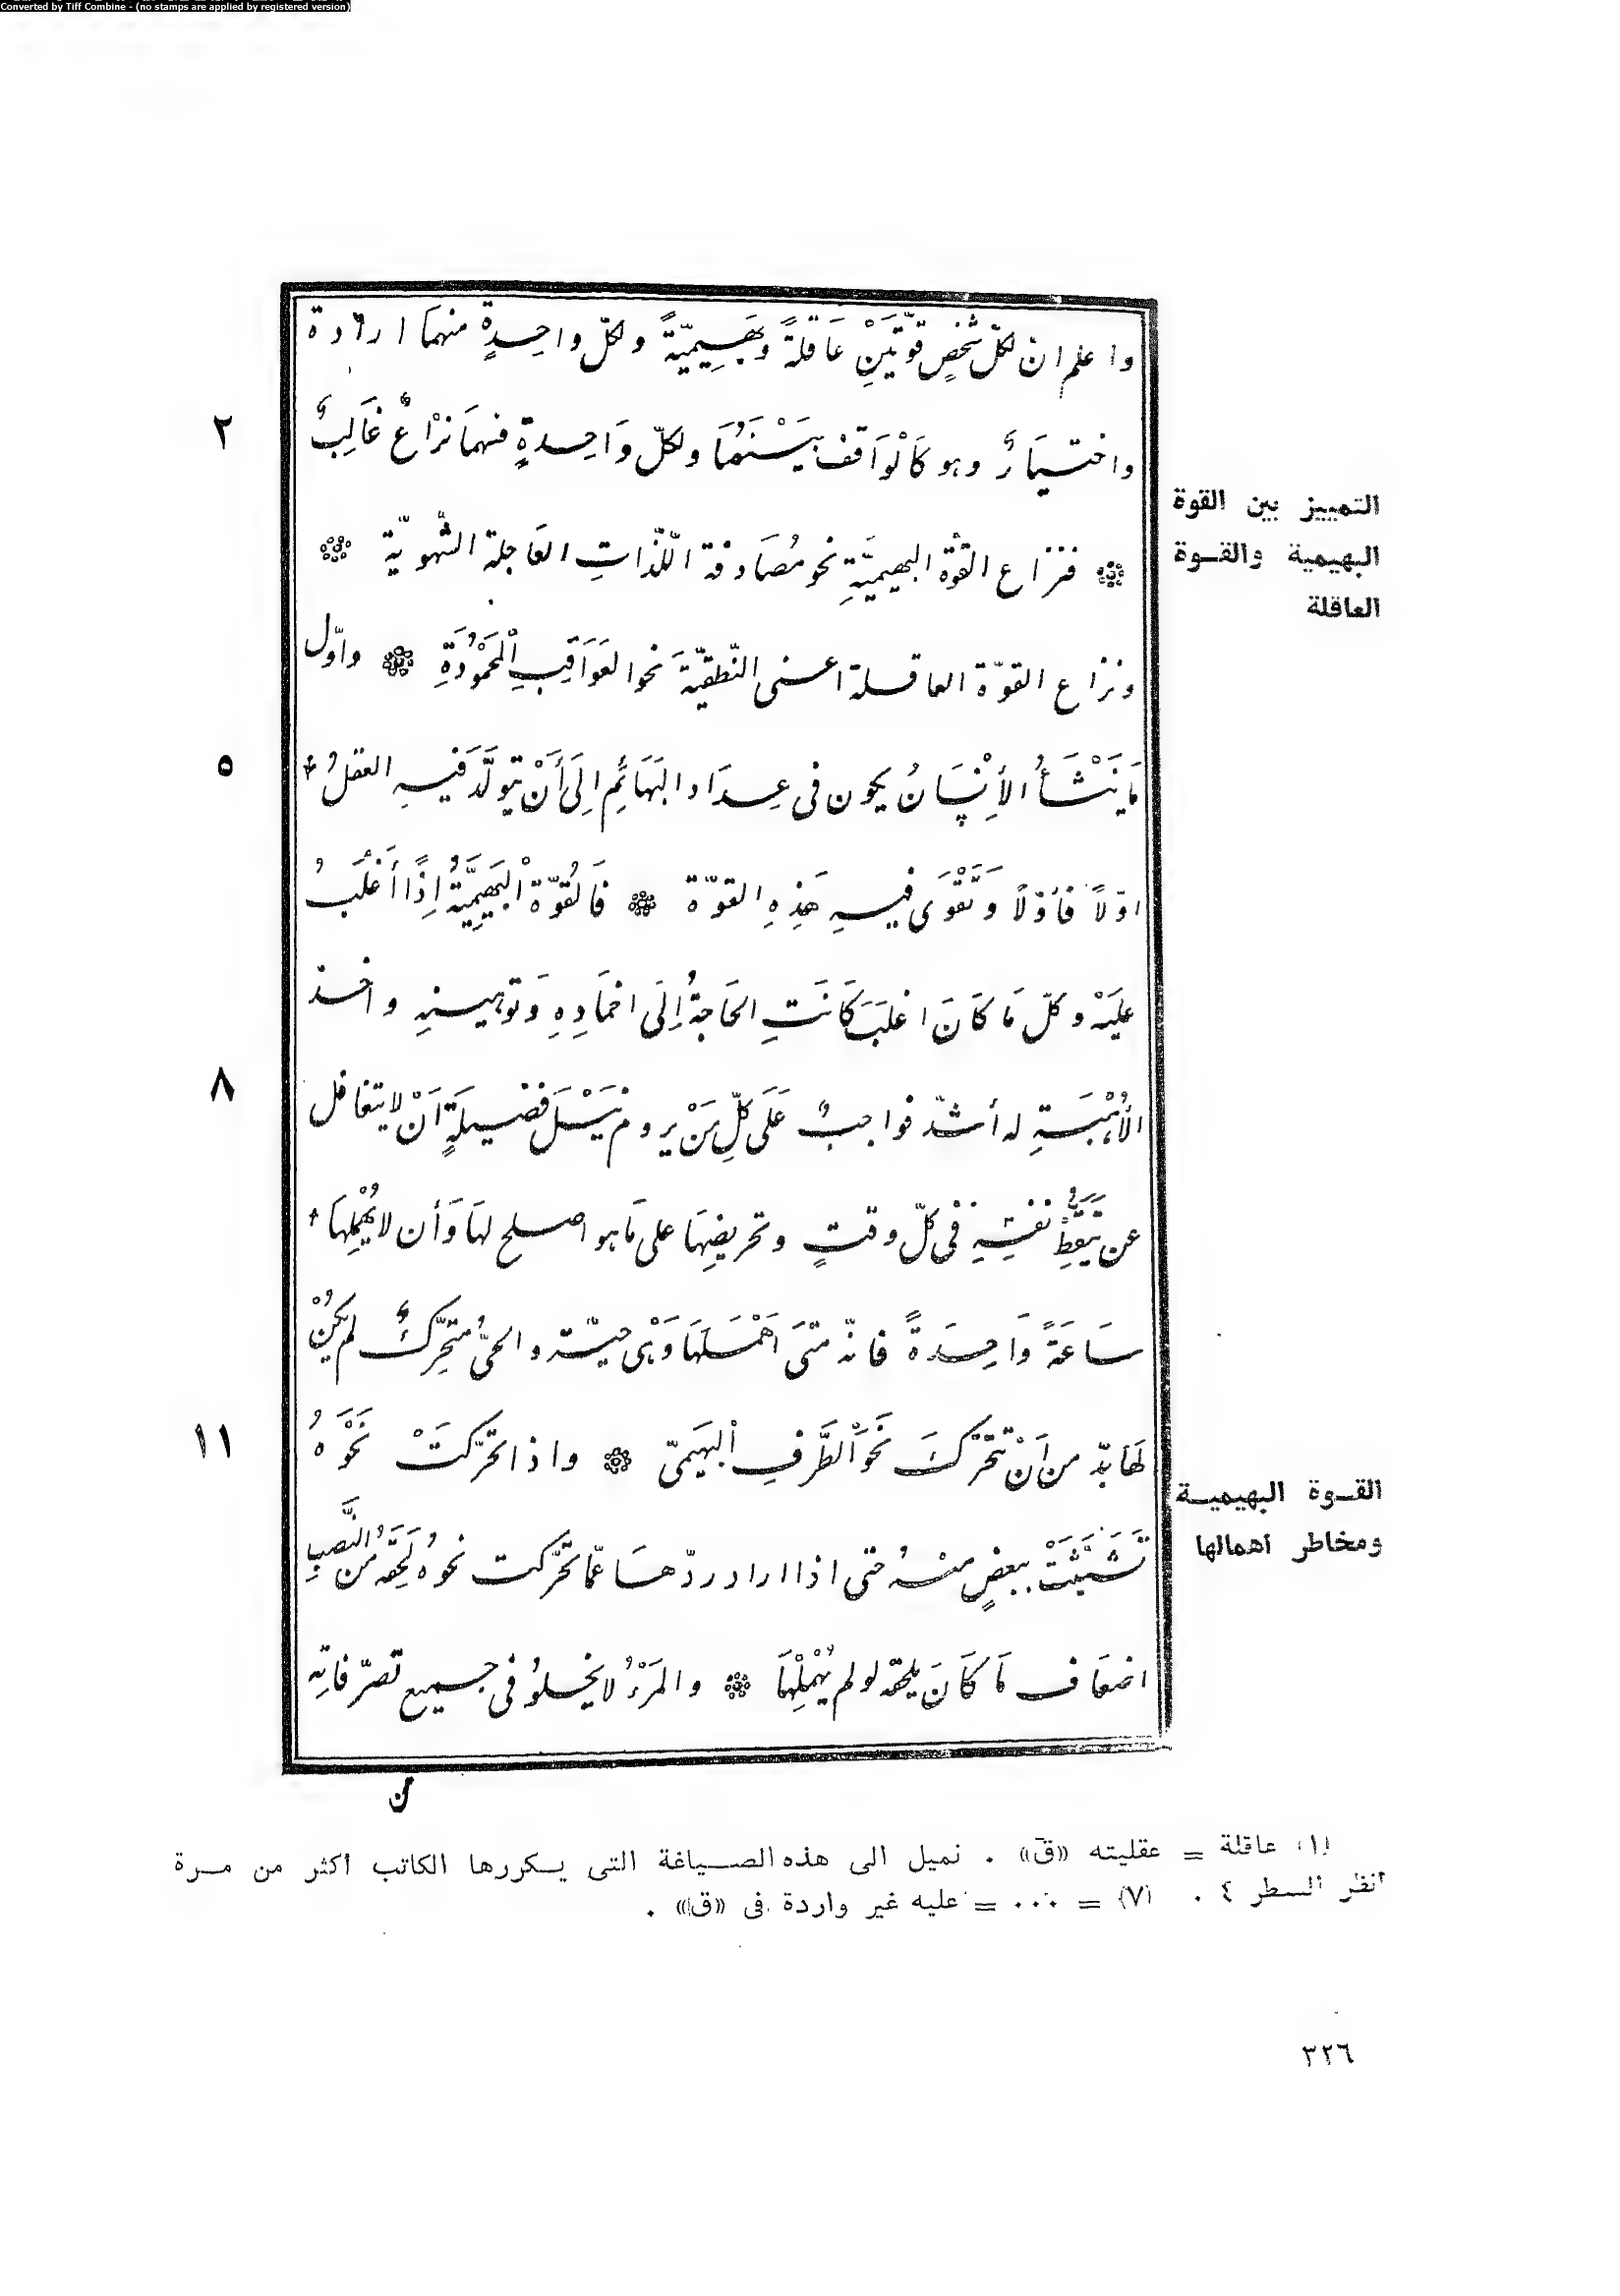 Converted by Tiff Combine - (no stamps are applied by registered version)
واعلم ان لكلّ شخصٍ قوّتَيْنِ عَاقلةً وبَهِيمِيّةً ولكلّ واحِدةٍ منهمَا ارادة
٢
واختيَارٌ وهو كَالْوَاقف بَيْنَهُمَا ولكلّ وَاحِدةٍ منهمَا نزَاعٌ غَالِبٌ
التمييز بين القوة
البهيمية والقوة
العاقلة
فنزاع القوّة البهيميَّةِ نحو مُصَادفة اللّذاتِ العَاجلة الشّهويّة
ونزاع القوّة العاقلة اعنى النّطقيّةَ نحو العَوَاقِبِ الْمَحْمُودَةِ واوّل
٥
مَا يَنْشَأُ الأِنْسَانُ يكون فى عِدَاد البَهَائمِ اِلَى أَنْ يَتولَّدَ فيهِ العقلُ
اوّلاً فأوّلاً وَتَقْوَى فيهِ هَذِهِ القوّة فَالقُوّة الْبَهِيمِيَّةُ اِذًا أَغْلَبُ
عليَه وكلّ مَا كَانَ اغلَبَ كَانَتِ الحَاجةُ اِلَى اخمَادِهِ وَتوهينهِ واخذ
٨
الأُهْبَةِ له أشدّ فواجبٌ عَلَى كلِّ مَنْ يروم نَيْلَ فضيلَةٍ اَنْ لا يتغافل
عن تَيَقُّظِ نفسِهِ فى كلّ وقتٍ وتحريضِهَا على مَا هو اصلح لهَا وَأن لا يُهْمِلَهَا
سَاعَةً وَاحِدَةً فانّه متَى اَهْمَلَهَا وَهى حيّة والحىُّ مُتحرّكٌ لم يكُنْ
١١
لهَا بدّ من اَنْ تتحَرّكَ نَحْوَ الطَّرفِ الْبَهيَمىّ واذا تحَرّكَتْ نَحْوَهُ
القوة البهيمية
ومخاطر اهمالها
تَشَبَّثَتْ ببعضٍ منهُ حتى اذا اراد ردّهَا عمّا تحَرّكت نحوهُ لَحِقَهُ من النَّصَبِ
اضعَاف مَا كَانَ يلحقه لو لم يُهْمِلْهَا والمَرْءُ لا يخلوُ فى جميع تصرّفاتِه
ن
(١) عاقلة = عقليته «ق» . نميل الى هذه الصياغة التى يكررها الكاتب أكثر من مرة
انظر السطر ٤ . (٧) = ... = عليه غير واردة فى «ق» .
٣٢٦